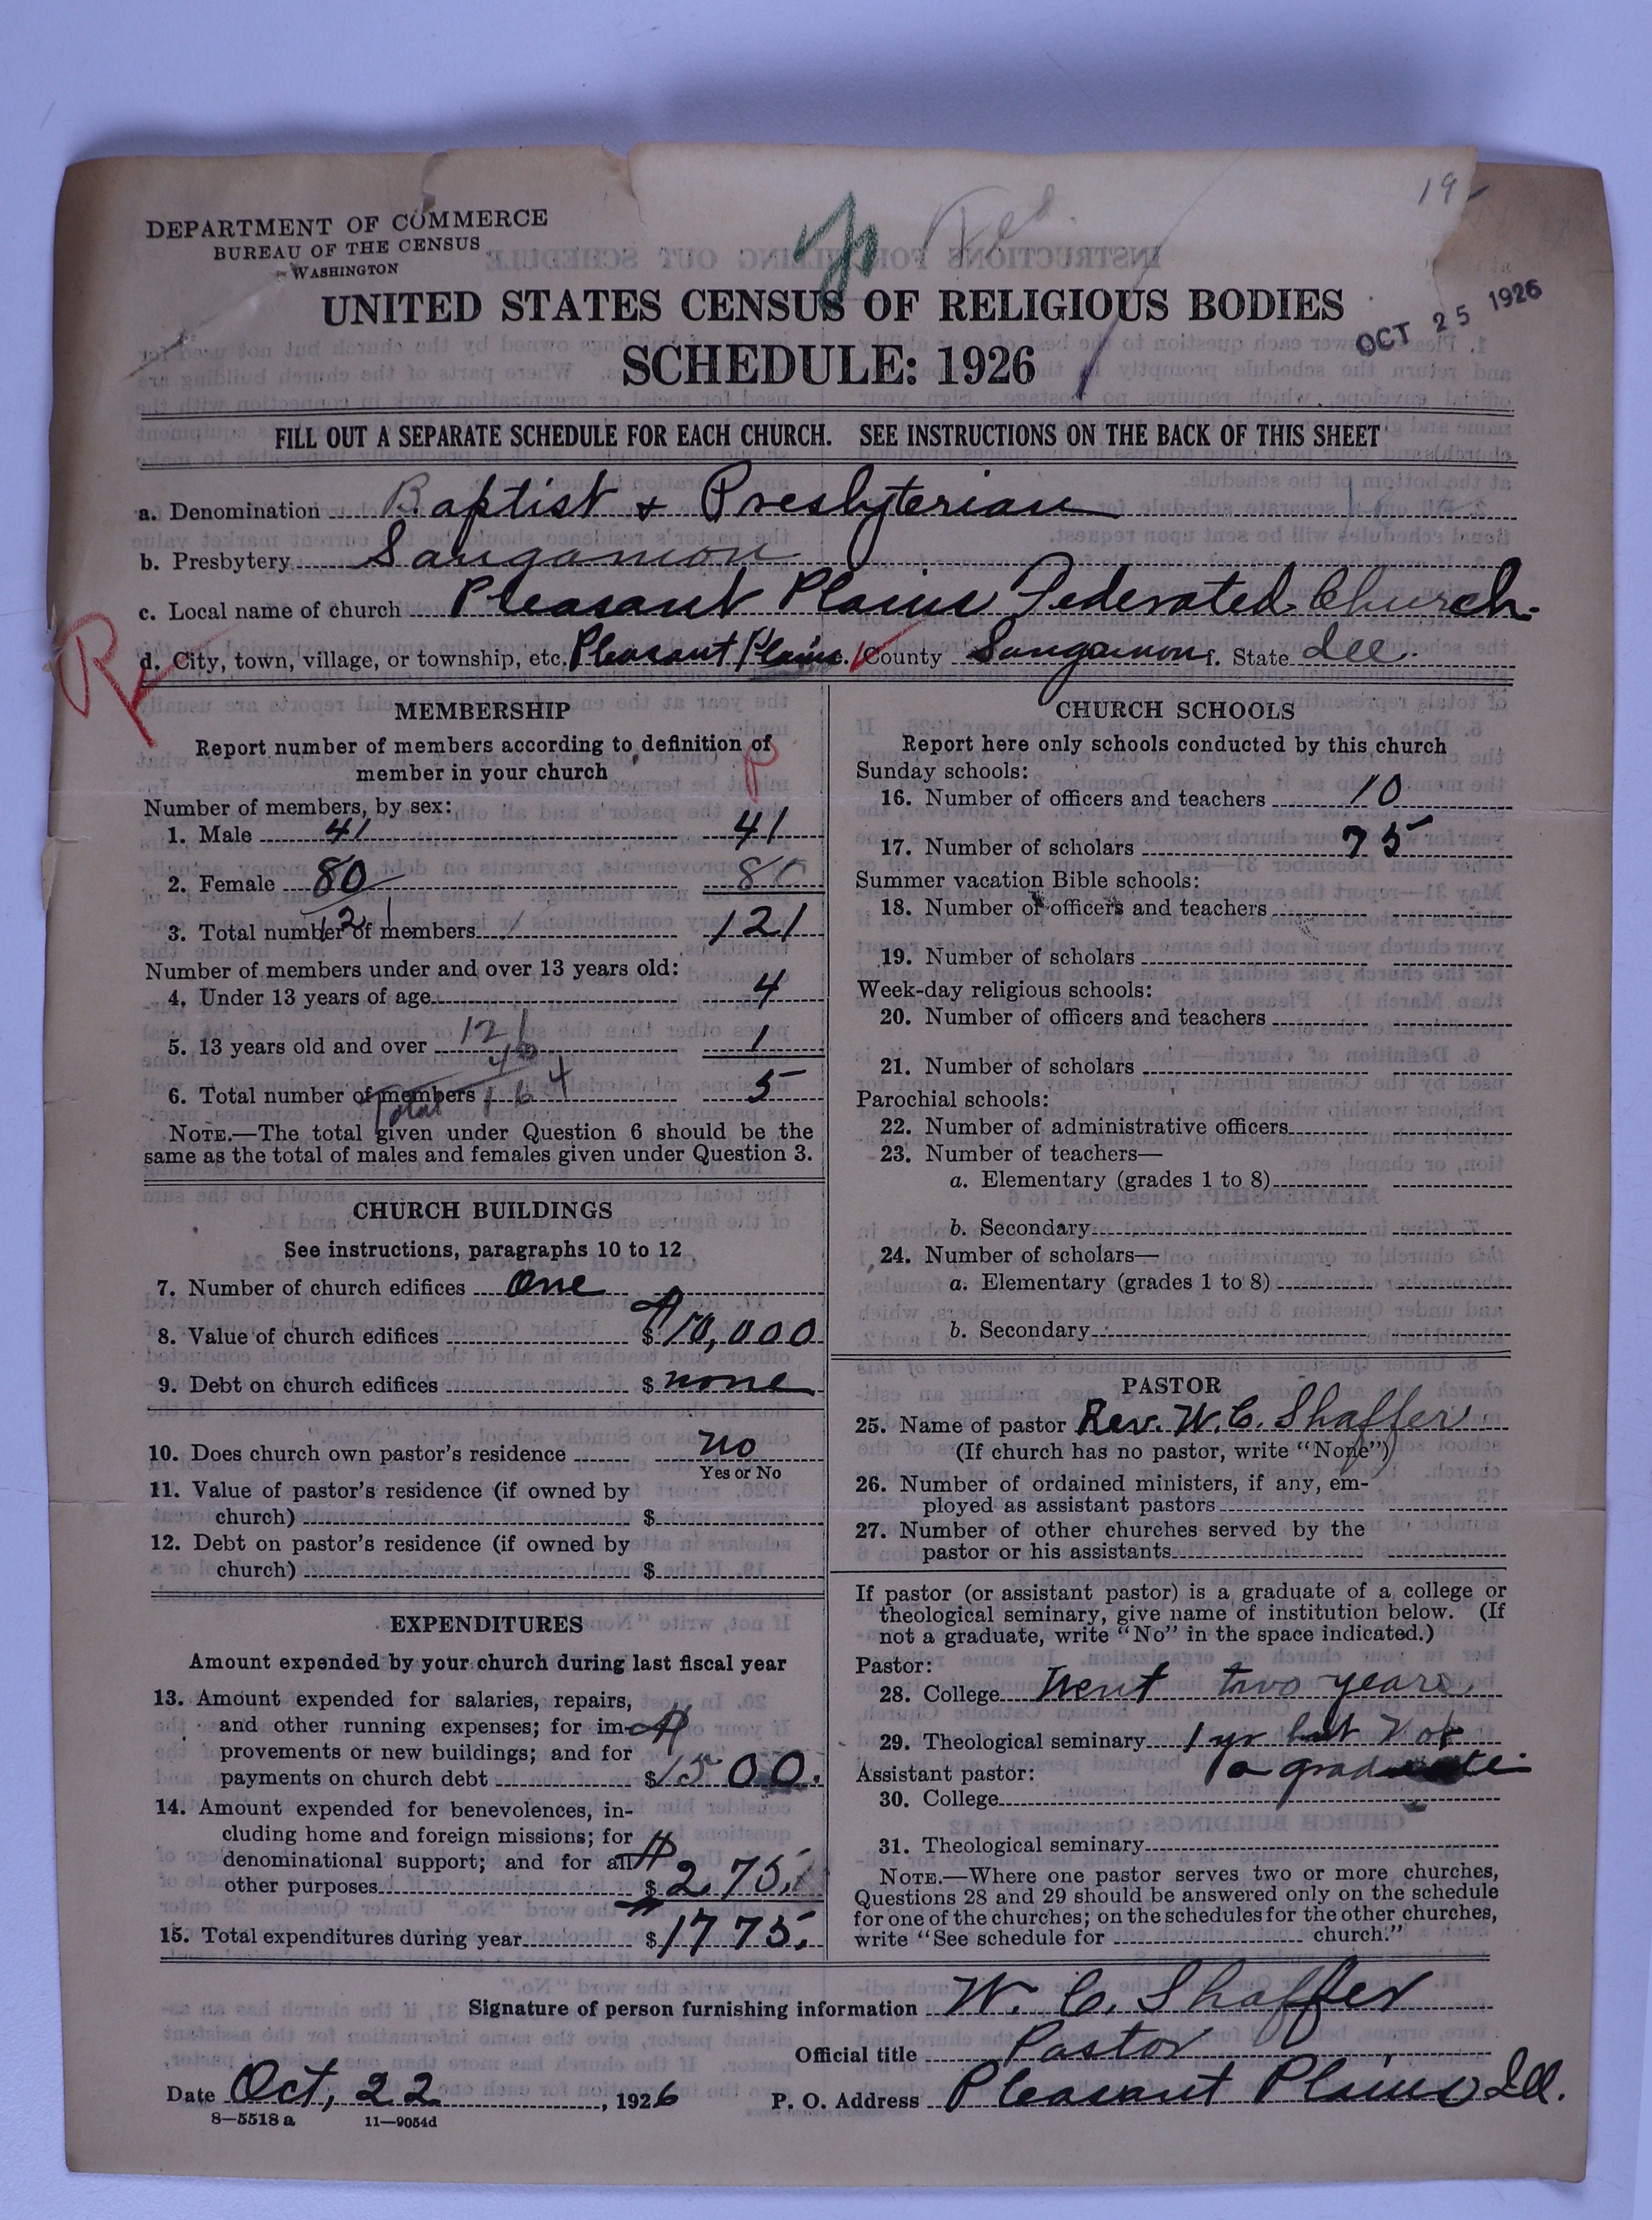 19
Fed.
DEPARTMENT OF COMMERCE
BUREAU OF THE CENSUS
WASHINGTON
UNITED STATES CENSUS OF RELIGIOUS BODIES
OCT 25 1926
SCHEDULE: 1926
FILL OUT A SEPARATE SCHEDULE FOR EACH CHURCH. SEE INSTRUCTIONS ON THE BACK OF THIS SHEET
a. Denomination Baptist & Presbyterian
b. Presbytery Sangamon
c. Local name of church Pleasant Plains Federated Church
d. City, town, village, or township, etc. Pleasant Plains e. County Sangamon f. State Ill
MEMBERSHIP
Report number of members according to definition of
member in your church
Number of members, by sex:
1. Male 41 41
2. Female 80 80
3. Total number of members 121 121
Number of members under and over 13 years old:
4. Under 13 years of age 4
5. 13 years old and over 121 1
6. Total number of members Total 164 5
NOTE.—The total given under Question 6 should be the
same as the total of males and females given under Question 3.
CHURCH BUILDINGS
See instructions, paragraphs 10 to 12
7. Number of church edifices One
8. Value of church edifices $ 10,000
9. Debt on church edifices $ none
10. Does church own pastor's residence No
Yes or No
11. Value of pastor's residence (if owned by
church) $
12. Debt on pastor's residence (if owned by
church) $
EXPENDITURES
Amount expended by your church during last fiscal year
13. Amount expended for salaries, repairs,
and other running expenses; for im-
provements or new buildings; and for
payments on church debt $ 1500.
14. Amount expended for benevolences, in-
cluding home and foreign missions; for
denominational support; and for all
other purposes $ 275.
15. Total expenditures during year $ 1775.
CHURCH SCHOOLS
Report here only schools conducted by this church
Sunday schools:
16. Number of officers and teachers 10
17. Number of scholars 75
Summer vacation Bible schools:
18. Number of officers and teachers
19. Number of scholars
Week-day religious schools:
20. Number of officers and teachers
21. Number of scholars
Parochial schools:
22. Number of administrative officers
23. Number of teachers—
a. Elementary (grades 1 to 8)
b. Secondary
24. Number of scholars—
a. Elementary (grades 1 to 8)
b. Secondary
PASTOR
25. Name of pastor Rev. W. C. Shaffer
(If church has no pastor, write "None")
26. Number of ordained ministers, if any, em-
ployed as assistant pastors
27. Number of other churches served by the
pastor or his assistants
If pastor (or assistant pastor) is a graduate of a college or
theological seminary, give name of institution below. (If
not a graduate, write "No" in the space indicated.)
Pastor:
28. College Went two years
29. Theological seminary 1 yr but not
Assistant pastor: a graduate
30. College
31. Theological seminary
NOTE.—Where one pastor serves two or more churches,
Questions 28 and 29 should be answered only on the schedule
for one of the churches; on the schedules for the other churches,
write "See schedule for church."
Signature of person furnishing information W. C. Shaffer
Official title Pastor
Date Oct, 22, 1926 P. O. Address Pleasant Plains Ill.
8—5518 a 11—9054d